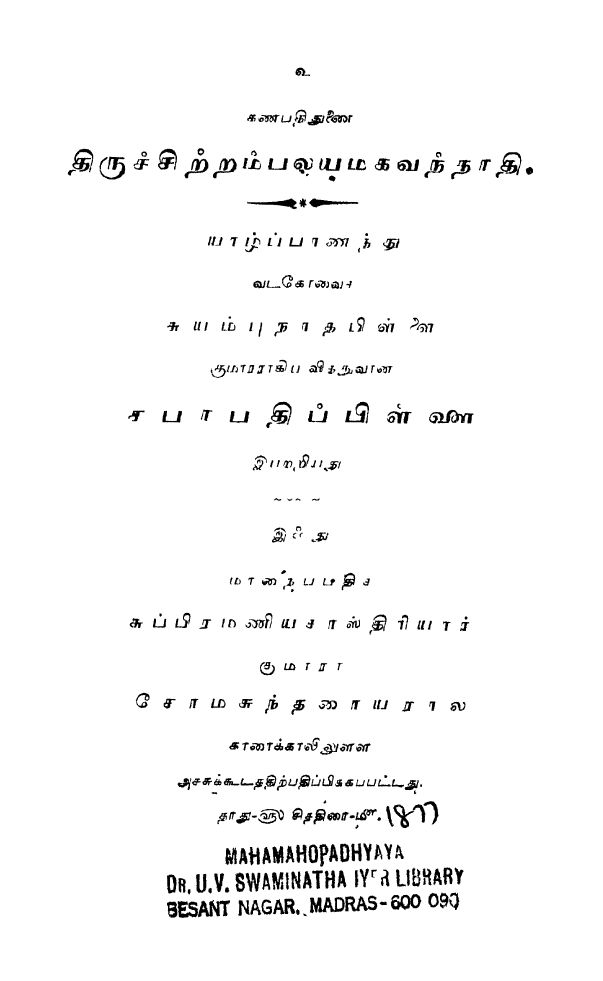 உ
கணபதிதுணை
திருச்சிற்றம்பலயமகவந்தாதி.
யாழ்ப்பாணத்து
வடகோவைச
சுயம்புநாதபிள்ளை
குமாரராகிய வித்துவான
சபாபதிப்பிள்ளை
இயற்றியது
இஃது
சுப்பிரமணியசாஸ்திரியார்
குமாரா
சோமசுந்தரையரால
காரைக்காலிலுளள
அசசுக்கூடததிற்பதிப்பிககபபட்டது.
தாது-௵ சித்திரை-௴. 1877
MAHAMAHOPADHYAYA
DR. U.V. SWAMINATHA IYER LIBRARY
BESANT NAGAR, MADRAS-600 090